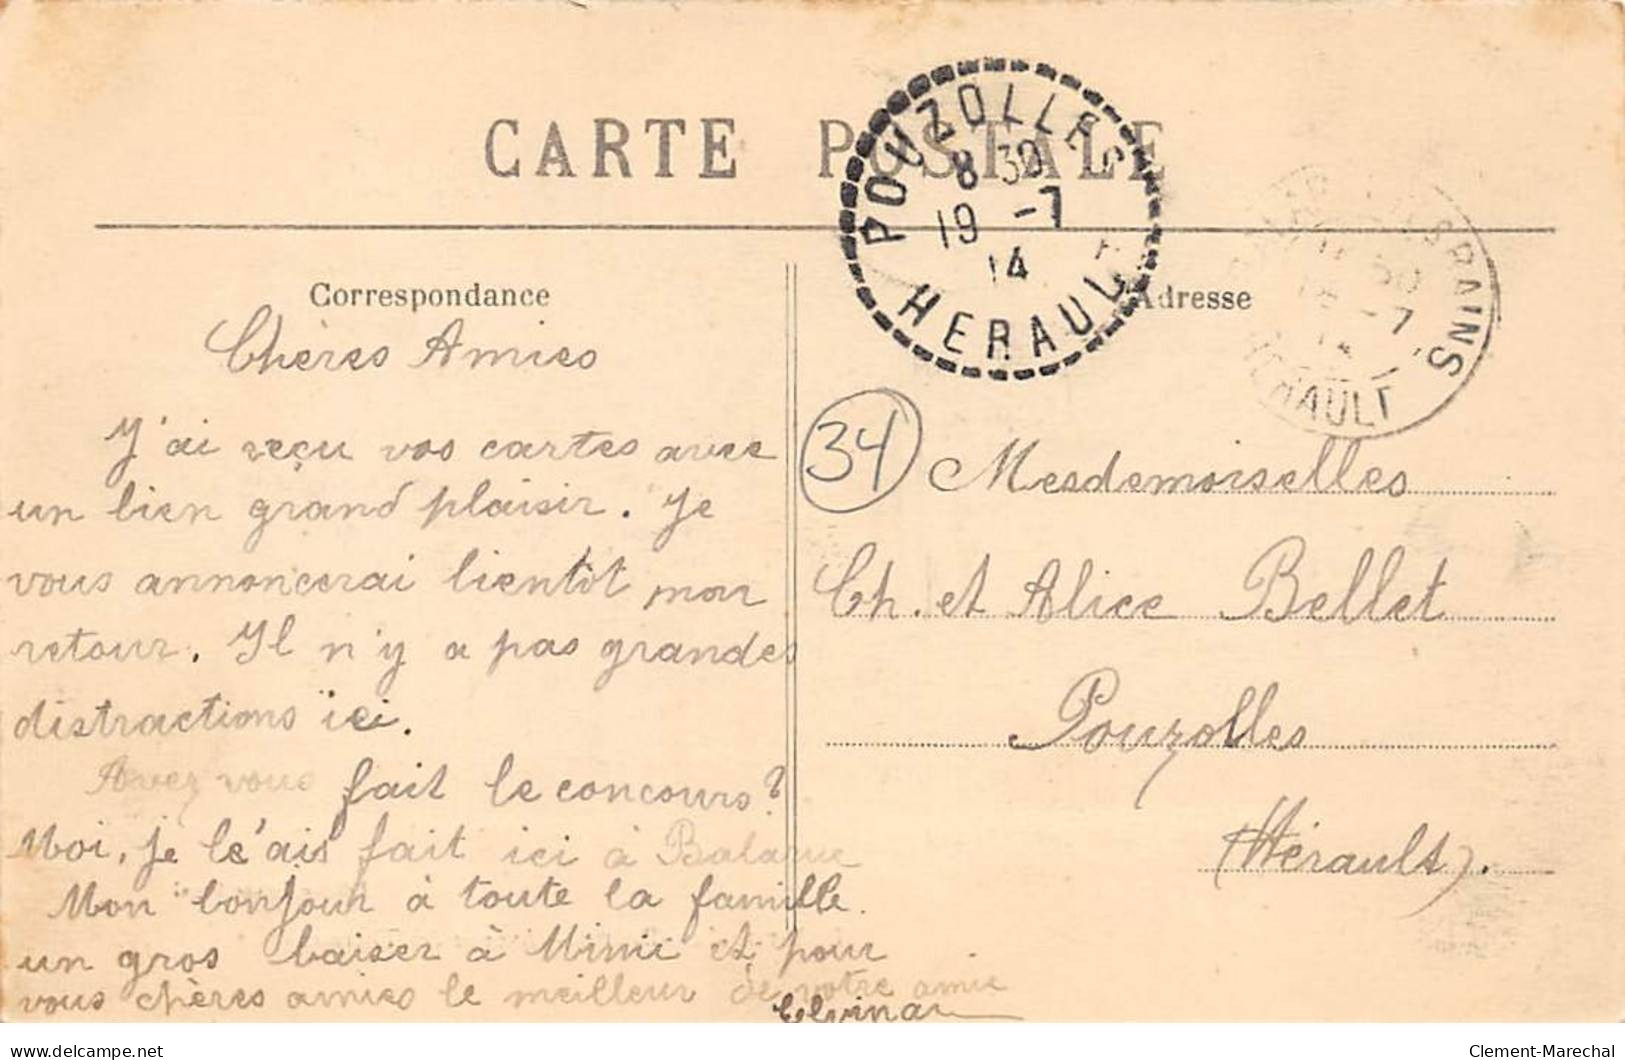 CARTE POSTALE
POUZOLLES
8 30
19 -7
14
HERAULT
50
-7
BAINS
HERAULT
Correspondance
Chères Amies
J'ai reçu vos cartes avec
un bien grand plaisir. Je
vous annoncerai bientôt mon
retour. Il n'y a pas grandes
distractions ici.
Avez vous fait le concours?
Moi, je le'ais fait ici à Balaruc
Mon bonjour à toute la famille.
un gros baiser à Mimi et pour
vous chères amies le meilleur de votre amie
Elvina
Adresse
34
Mesdemoiselles
Ch. et Alice Bellet
Pouzolles
(Hérault).
delcampe.net
Clement-Marechal